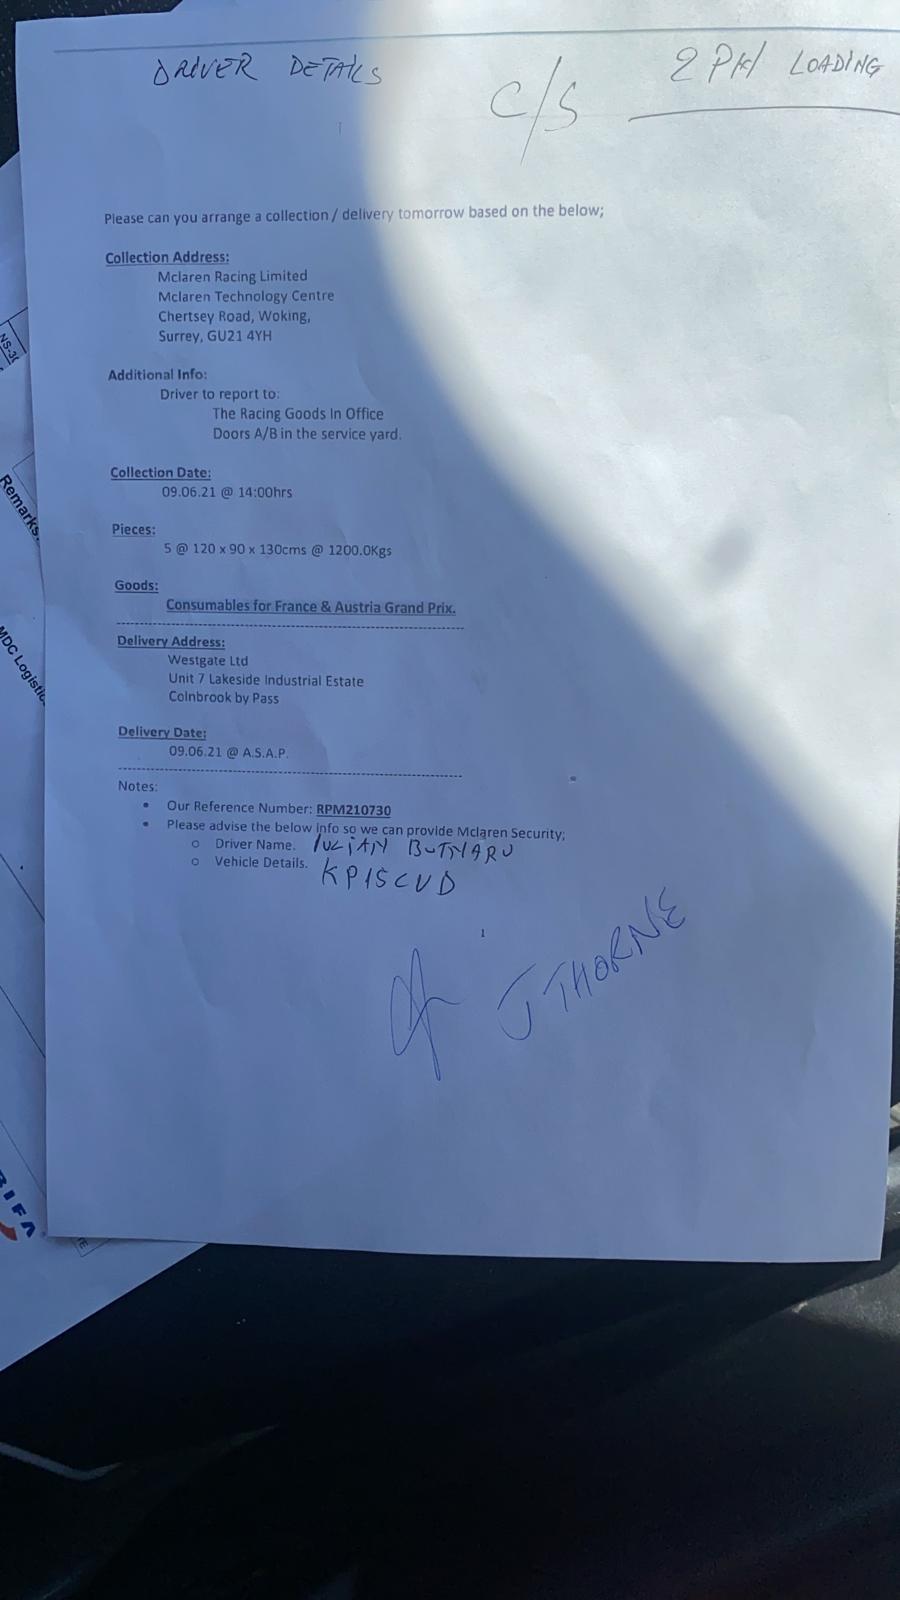 DRIVER DETAILS
C/S
2 PM LOADING
Please can you arrange a collection / delivery tomorrow based on the below;
Collection Address:
Mclaren Racing Limited
Mclaren Technology Centre
Chertsey Road, Woking,
Surrey, GU21 4YH
Additional Info:
Driver to report to:
The Racing Goods In Office
Doors A/B in the service yard.
Collection Date:
09.06.21 @ 14:00hrs
Pieces:
5 @ 120 x 90 x 130cms @ 1200.0Kgs
Goods:
Consumables for France & Austria Grand Prix.
Delivery Address:
Westgate Ltd
Unit 7 Lakeside Industrial Estate
Colnbrook by Pass
Delivery Date:
09.06.21 @ A.S.A.P.
Notes:
• Our Reference Number: RPM210730
• Please advise the below info so we can provide Mclaren Security;
o Driver Name. IULIAN BUTNARU
o Vehicle Details. KP15CVD
1
J THORNE
NS-30
Remarks
MDC Logistic
BIFA